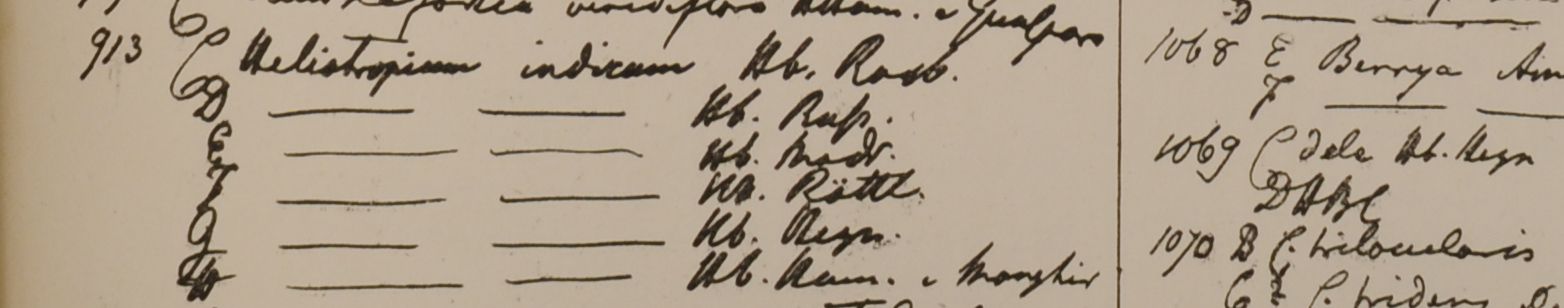 viridiflora Ham. e Gualpara
913 C Heliotropium indicum Hb. Roxb.
D —— —— Hb. Russ.
E —— —— Hb. Madr.
F —— —— Hb. Röttl.
G —— —— Hb. Heyn.
H —— —— Hb. Ham. e Monghir
D —— ——
1068 E Berrya Am
F —— ——
1069 C dele Hb. Heyn
D A B C
1070 B C. trilocularis
C C. tridens